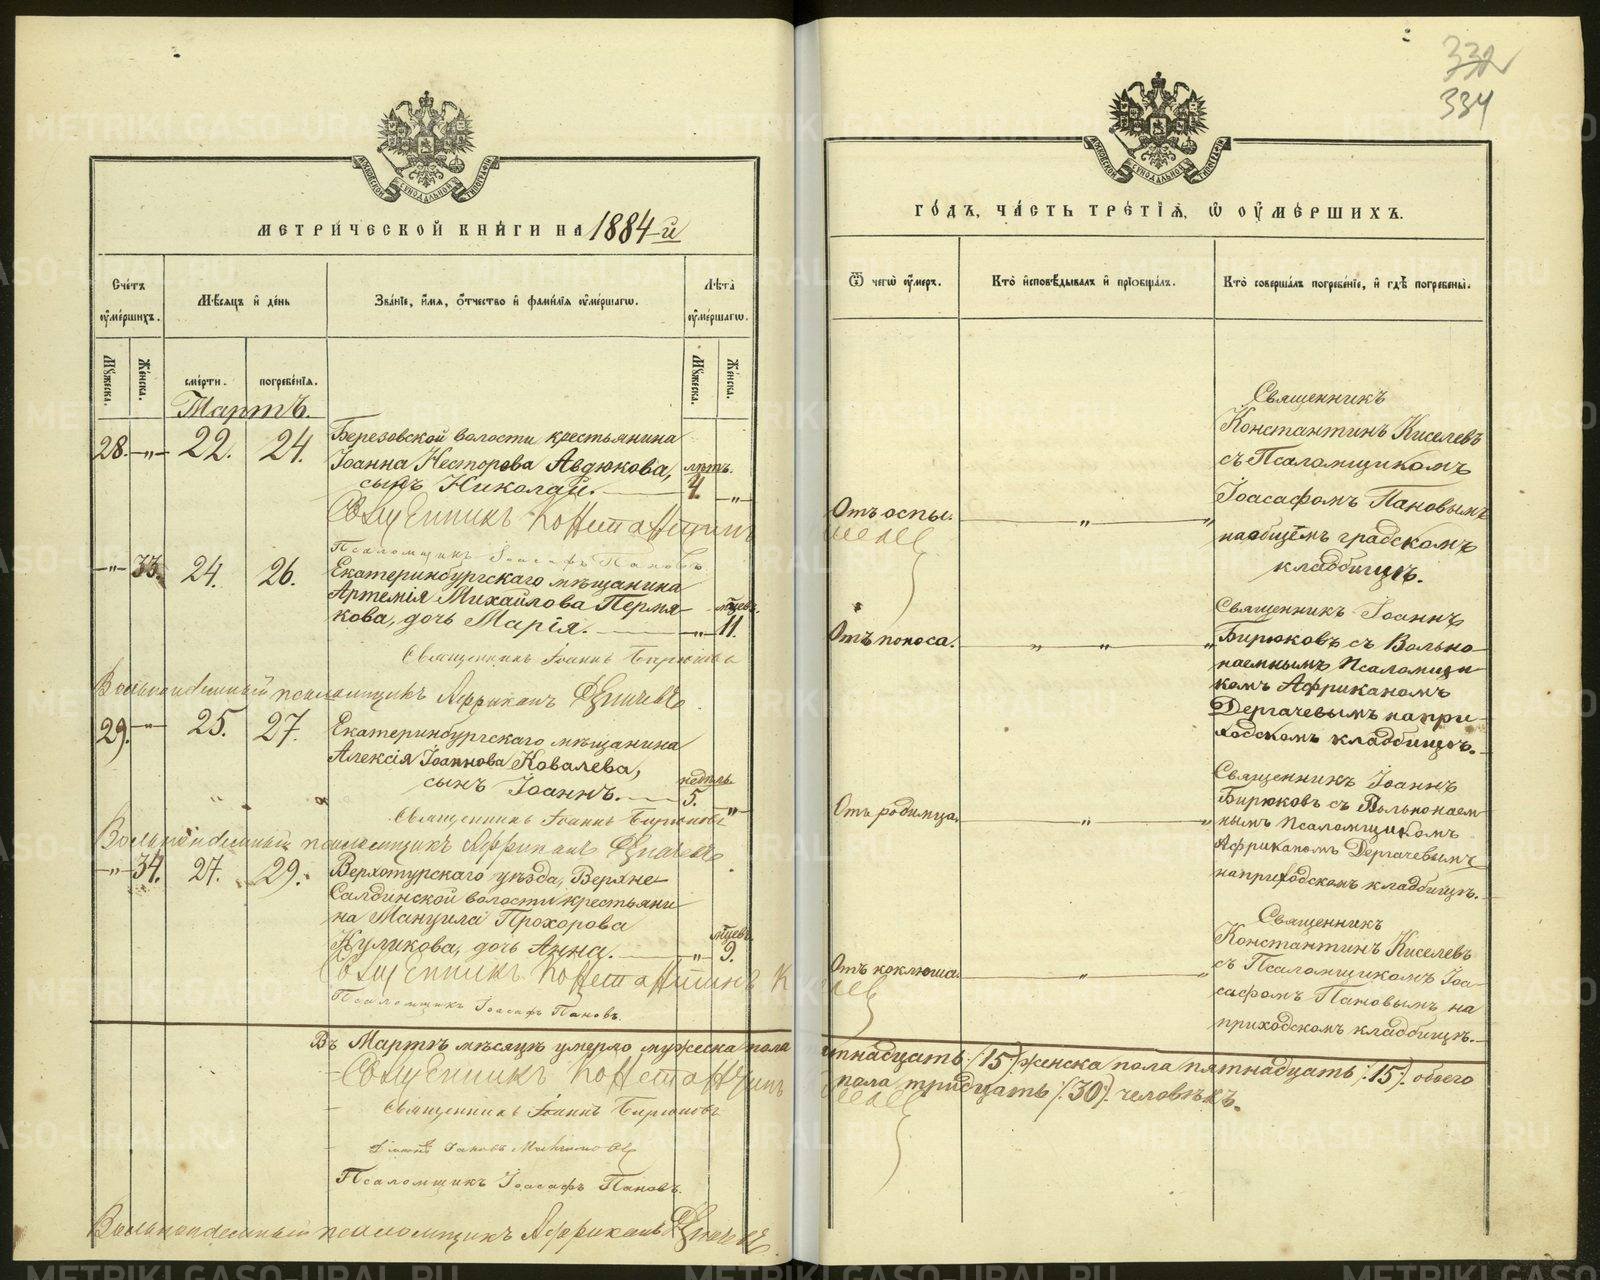 332
334
МЕТРИЧЕСКОЙ КНИГИ НА 1884-й
ГОДЪ, ЧАСТЬ ТРЕТІЯ, Ѡ ОУМЕРШИХЪ.
Счетъ оумершихъ.
Мѣсяцъ и день
Званіе, имя, отчество и фамилія оумершагѡ.
Лѣта оумершагѡ.
Ѿ чегѡ оумеръ.
Кто исповѣдывалъ и пріобщалъ.
Кто совершалъ погребеніе, и гдѣ погребены.
Мужеска.
Женска.
смерти.
погребенія.
Мужеска.
Женска.
Мартъ.
28. „ 22. 24.
Березовской волости крестьянина
Іоанна Несторова Авдюкова,
сынъ Николай.
лѣтъ.
4. „
Священникъ Константинъ
Псаломщикъ Іоасафъ Пановъ
Отъ оспы.
„ „
Священникъ
Константинъ Киселевъ
съ Псаломщикомъ
Іоасафомъ Пановымъ
на общемъ градскомъ
кладбищѣ.
„ 33. 24. 26.
Екатеринбургскаго мѣщанина
Артемія Михайлова Пермя-
кова, дочь Марія.
мѣцевъ.
„ 11.
Священникъ Іоаннъ Бирюковъ
Вольнонаемный псаломщикъ Африканъ Дергачевъ
Отъ поноса.
„ „ „
Священникъ Іоаннъ
Бирюковъ съ Вольно-
наемнымъ Псаломщи-
комъ Африканомъ
Дергачевымъ на при-
ходскомъ кладбищѣ.
29. „ 25. 27.
Екатеринбургскаго мѣщанина
Алексія Іоаннова Ковалева,
сынъ Іоаннъ.
недѣль.
5. „
Священникъ Іоаннъ Бирюковъ
Вольнонаемный псаломщикъ Африканъ Дергачевъ
Отъ родимца.
„ „
Священникъ Іоаннъ
Бирюковъ съ Вольнонаем-
нымъ Псаломщикомъ
Африканомъ Дергачевымъ
на приходскомъ кладбищѣ.
„ 34. 27. 29.
Верхотурскаго уѣзда, Верхне-
Салдинской волости крестьяни
на Мануила Прохорова
Куликова, дочь Анна.
мѣцевъ.
„ 9.
Священникъ Константинъ Киселевъ
Псаломщикъ Іоасафъ Пановъ.
Отъ коклюша.
„ „
Священникъ
Константинъ Киселевъ
съ Псаломщикомъ Іоа-
сафомъ Пановымъ на
приходскомъ кладбищѣ.
Въ Мартѣ мѣсяцѣ умерло мужеска пола пятнадцать /:15:/ женска пола пятнадцать /:15:/. обоего
пола тридцать /:30:/. человѣкъ.
Священникъ Константинъ Киселевъ
Священникъ Іоаннъ Бирюковъ
Псаломщикъ Іоасафъ Пановъ.
Вольнонаемный псаломщикъ Африканъ Дергачевъ
METRIKI.GASO-URAL.RU